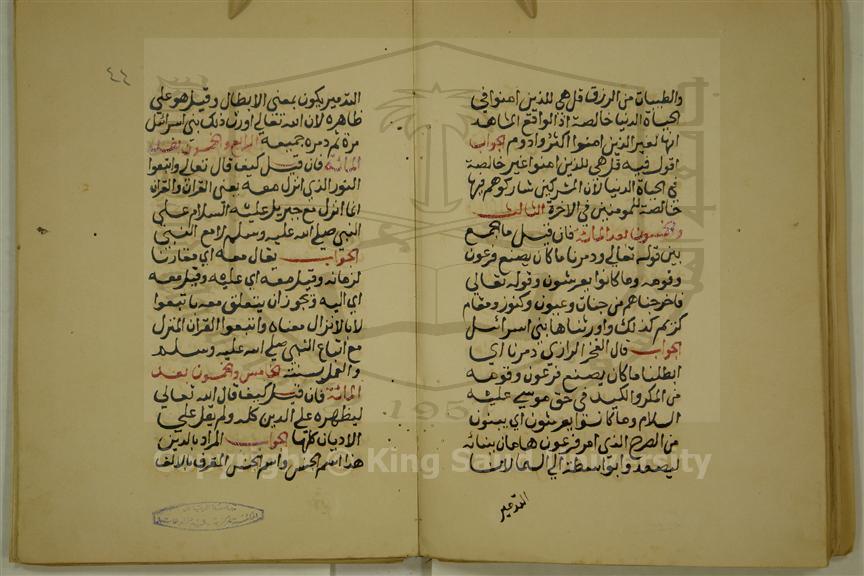 والطيبات من الرزق قل هي للذين امنوا في
الحياة الدنيا خالصة اذ الواقع المشاهد
انها لغير الذين امنوا اكثر وادوم الجواب
اقول فيه قل هي للذين امنوا غير خالصة
في الحياة الدنيا لان المشركين شاركوهم فيها
خالصة للمومنين في الاخرة الثالث
والخمسون بعد المائة فان قيل ما الجمع
بين قوله تعالى ودمرنا ما كان يصنع فرعون
وقومه وما كانوا يعرشون وقوله تعالى
فاخرجناهم من جنات وعيون وكنوز ومقام
كريم كذلك واورثناها بني اسرائيل
الجواب قال الفخر الرازي دمرنا اي
ابطلنا ما كان يصنع فرعون وقومه
من المكر والكيد في حق موسى عليه
السلام وما كانوا يعرشون اي يبنون
من الصرح الذي امر فرعون هامان ببنائه
ليصعد بواسطته الى السما لان
التدمير
٤٤
التدمير يكون بمعنى الابطال وقيل هو على
ظاهره لان الله تعالى اورث ذلك بني اسرائيل
مدة ثم دمره جميعه الرابع والخمسون بعد
المائة فان قيل كيف قال تعالى واتبعوا
النور الذي انزل معه يعني القران والقران
انما انزل مع جبريل عليه السلام على
النبي صلى الله عليه وسلم لا مع النبي
الجواب يقال معه اي مقارنا
لزمانه وقيل معه اي عليه وقيل معه
اي اليه ويجوز ان يتعلق معه باتبعوا
لا بالانزال معناه واتبعوا القران المنزل
مع اتباع النبي صلى الله عليه وسلم
والعمل بسنته الخامس والخمسون بعد
المائة فان قيل كيف قال الله تعالى
ليظهره على الدين كله ولم يقل على
الاديان كلها الجواب المراد بالدين
هذا اسم الجنس واسم الجنس المعرف بالالف
Copyright © King Saud University
195